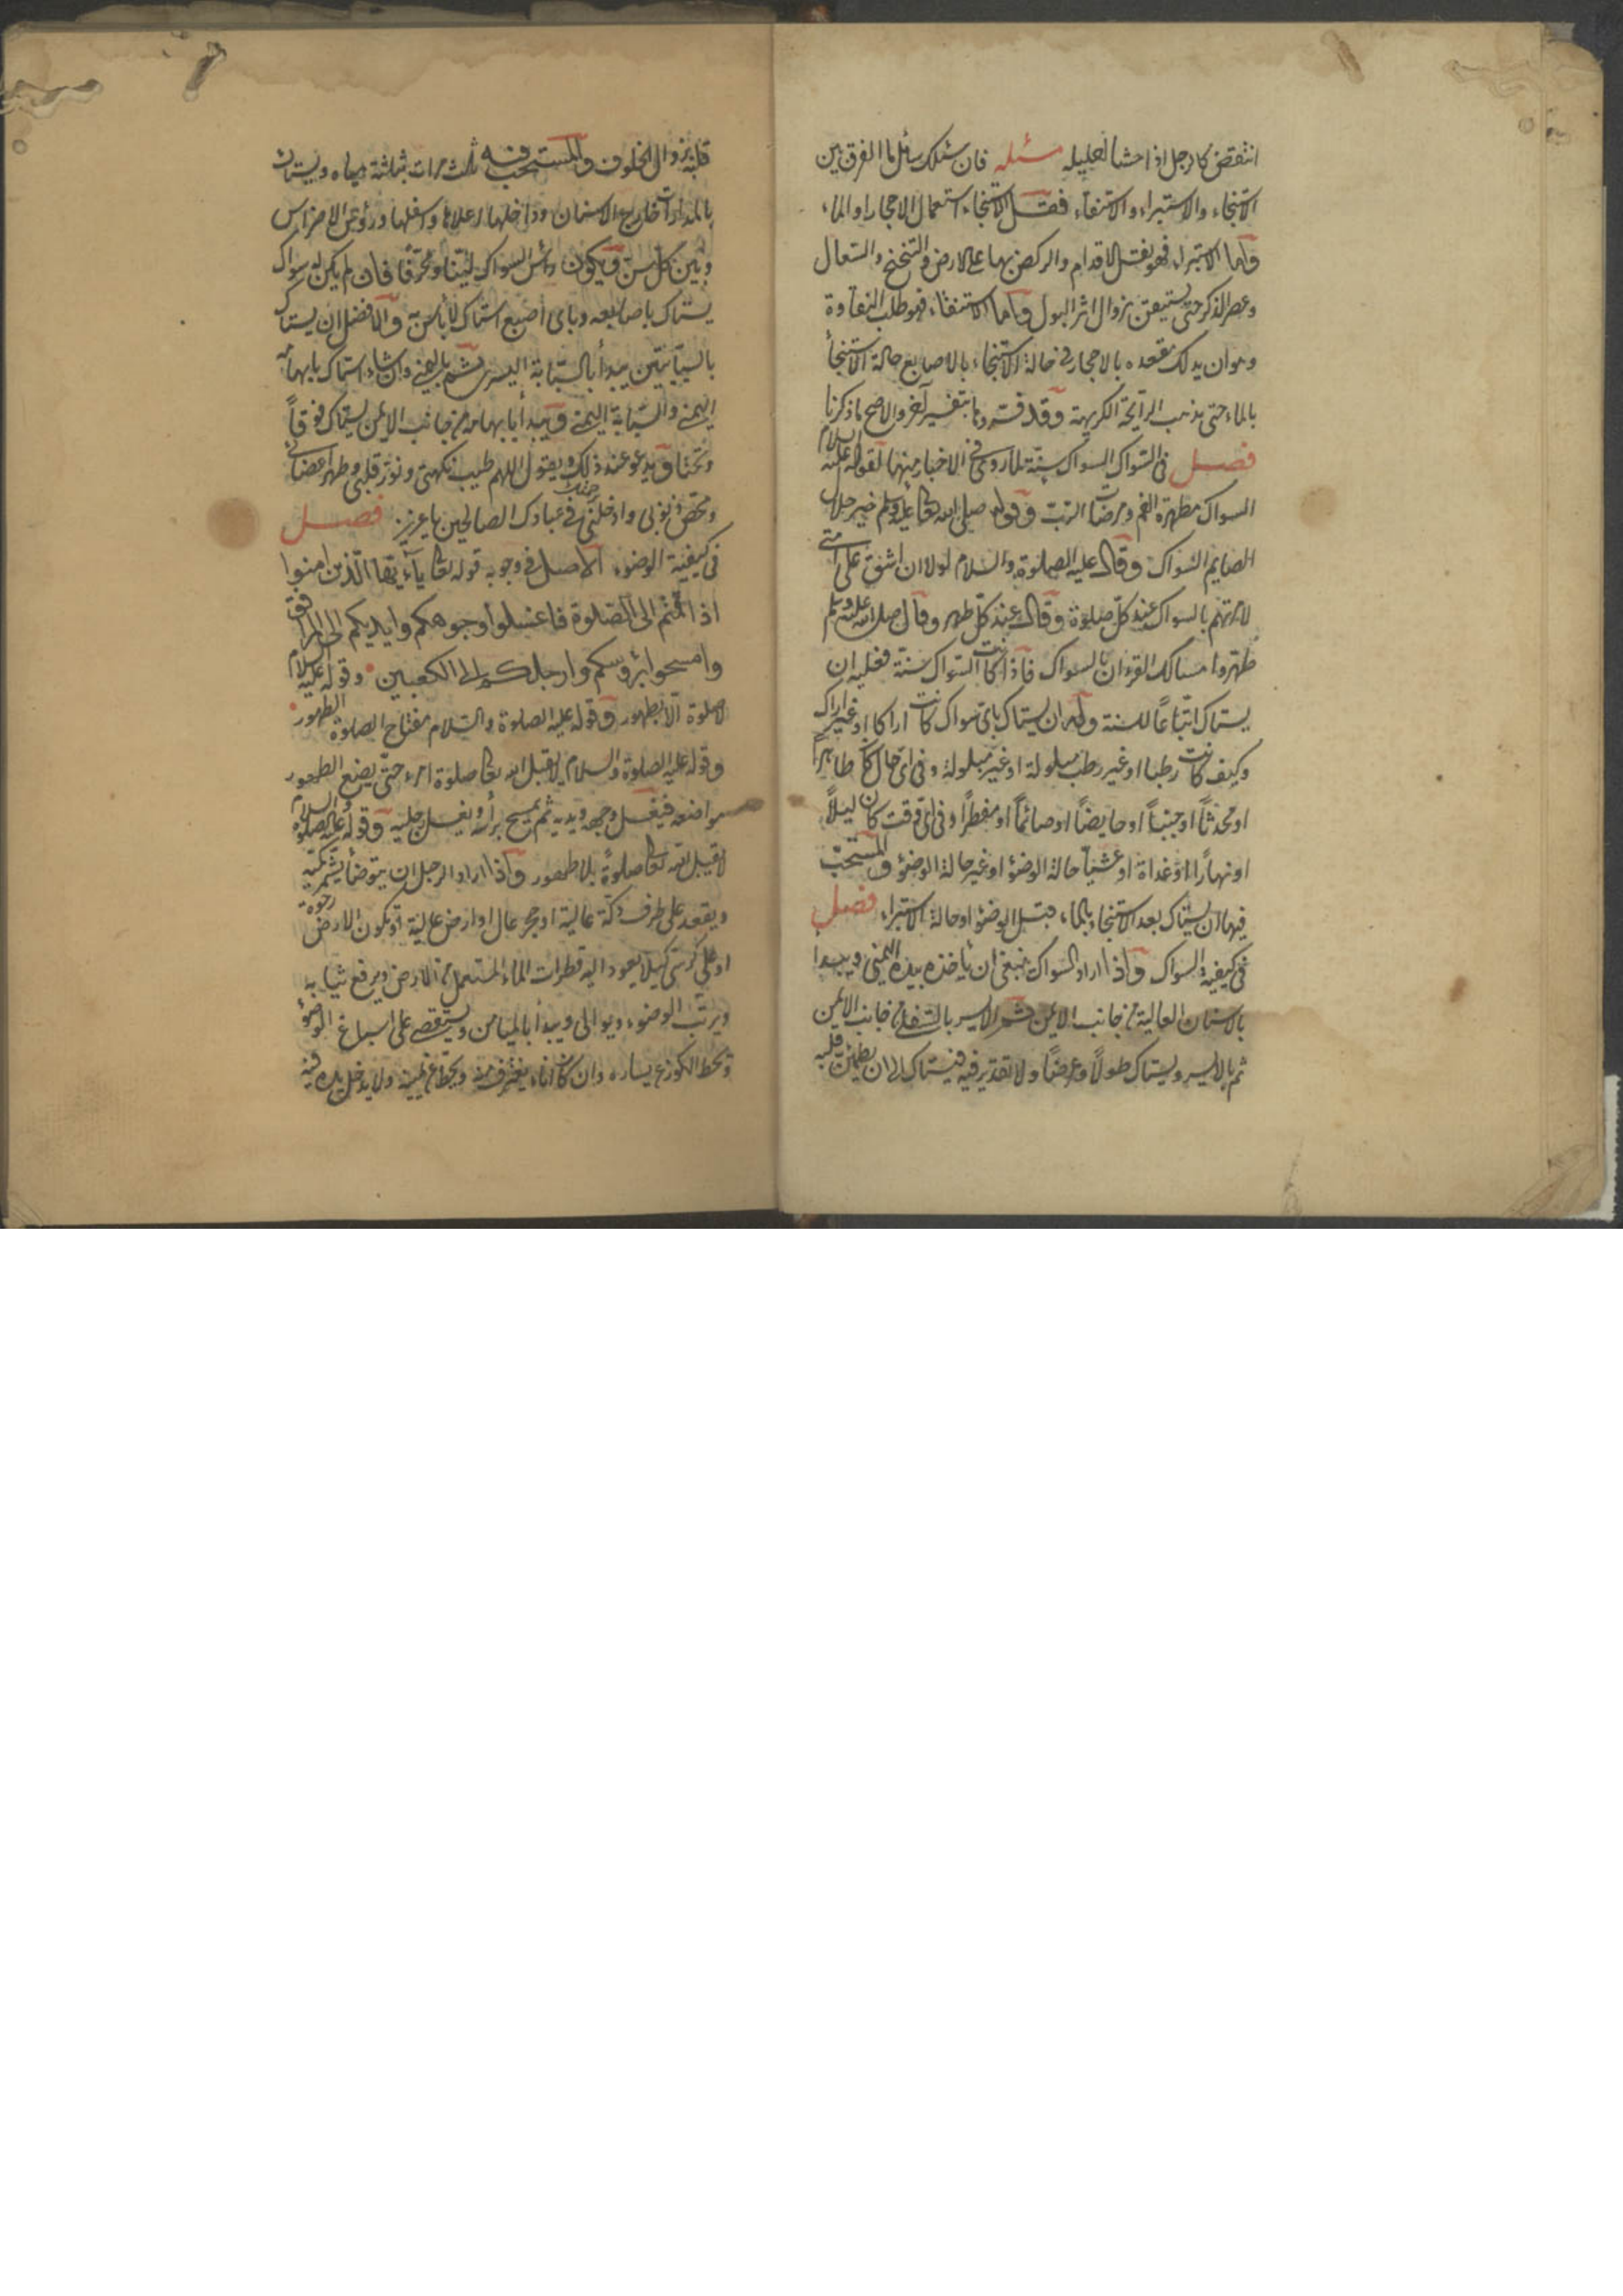 انتقض كالرجل اذا حشا احليله مسئله فان سئلك سائل ما الفرق بين
الاستنجاء والاستبراء والاستنقاء فقل الاستنجاء استعمال الاحجار او الماء
واما الاستبراء فهو نقل الاقدام والركض بها على الارض والتنحنح والسعال
وعصر الذكر حتى يستيقن بزوال اثر البول واما الاستنقاء فهو طلب النقاوة
وهو ان يدلك مقعده بالاحجار في حالة الاستنجاء بالاصابع حالة الاستنجأ
بالماء حتى يذهب الرايحة الكريهة وقد فسروها بتفسير آخر والاصح ما ذكرنا
فصل في السواك السواك سنة لما روى في الاخبار منها لقوله عليه السلام
السواك مطهرة الفم ومرضات الرب وقوله صلى الله تعالى عليه وسلم خير خلال
الصايم السواك وقال عليه الصلوة والسلام لولا ان اشق على امتى
لامرتهم بالسواك عند كل صلوة وقال عند كل طهر وقال صلى الله عليه وسلم
طهروا مسالك القرءان بالسواك فاذا كانت السواك سنة فعليه ان
يستاك اتباعًا للسنة وله ان يستاك باى سواك كانت اراكا او غير اراك
وكيف كانت رطبا او غير رطب مبلولة او غير مبلولة وفى اى حال كان طاهرًا
او محدثًا او جنبًا او حايضًا او صائمًا او مفطرًا وفى اى وقت كان ليلًا
او نهارًا او غداة او عشيًا حالة الوضؤ او غير حالة الوضؤ والمستحب
فيها ان يستاك بعد الاستنجاء بالماء قبل الوضؤ او حالة الاستبراء فصل
في كيفية السواك واذا اراد السواك ينبغى ان ياخذه بيده اليمنى ويبدا
بالاسنان العالية من جانب الايمن ثم الايسر بالسفلى من جانب الايمن
ثم بالايسر ويستاك طولًا وعرضًا ولا تقدير فيه فيستاك الى ان يطمئن قلبه
قلبه بزوال الخلوف والمستحب فيه ثلث مرات بثلثة مياه ويستاك
بالمدارات خارج الاسنان وداخلها اعلاها واسفلها ورؤس الاضراس
وبين كل سن ويكون رأس السواك لينًا او محرفًا فان لم يكن له سواك
يستاك باصابعه وباى اصبع استاك لا بأس به والافضل ان يستاك
بالسبابتين يبدأ بالسبابة اليسرى ثم باليمنى وان شاء استاك بابهامه
اليمنى والسبابة اليمنى ويبدأ بابهامه من جانب الايمن يستاك فوقًا
وتحتًا ويدعو عند ذلك ويقول اللهم طيب نكهتى ونور قلبى وطهر اعضائى
ومحص ذنوبى وادخلنى برحمتك في عبادك الصالحين يا عزيز فصل
في كيفية الوضوء الاصل في وجوبه قوله تعالى يآءيها الذين امنوا
اذا قمتم الى الصلوة فاغسلوا وجوهكم وايديكم الى المرافق
وامسحوا برؤسكم وارجلكم الى الكعبين وقوله عليه السلام
لا صلوة الا بطهور وقوله عليه الصلوة والسلام مفتاح الصلوة الطهور
وقوله عليه الصلوة والسلام لا يقبل الله تعالى صلوة امرء حتى يضع الطهور
مواضعه فيغسل وجهه ويديه ثم يمسح برأسه ويغسل رجليه وقوله عليه الصلوة والسلام
لا يقبل الله تعالى صلوةً بلا طهور واذا اراد الرجل ان يتوضأ يشمر كميه
ويقعد على طرف دكة عالية او حجر عال او ارض عالية او تكون الارض رخوة
او على كرسى كيلا يعود اليه قطرات الماء المستعمل من الارض ويرفع ثيابه
ويرتب الوضوء ويوالى ويبدا بالميامن ويستقصى على اسباغ الوضؤ
ويحط الكوز عن يساره وان كان اناء يغترف منه ويحط عن يمينه ولا يدخل يده فيه